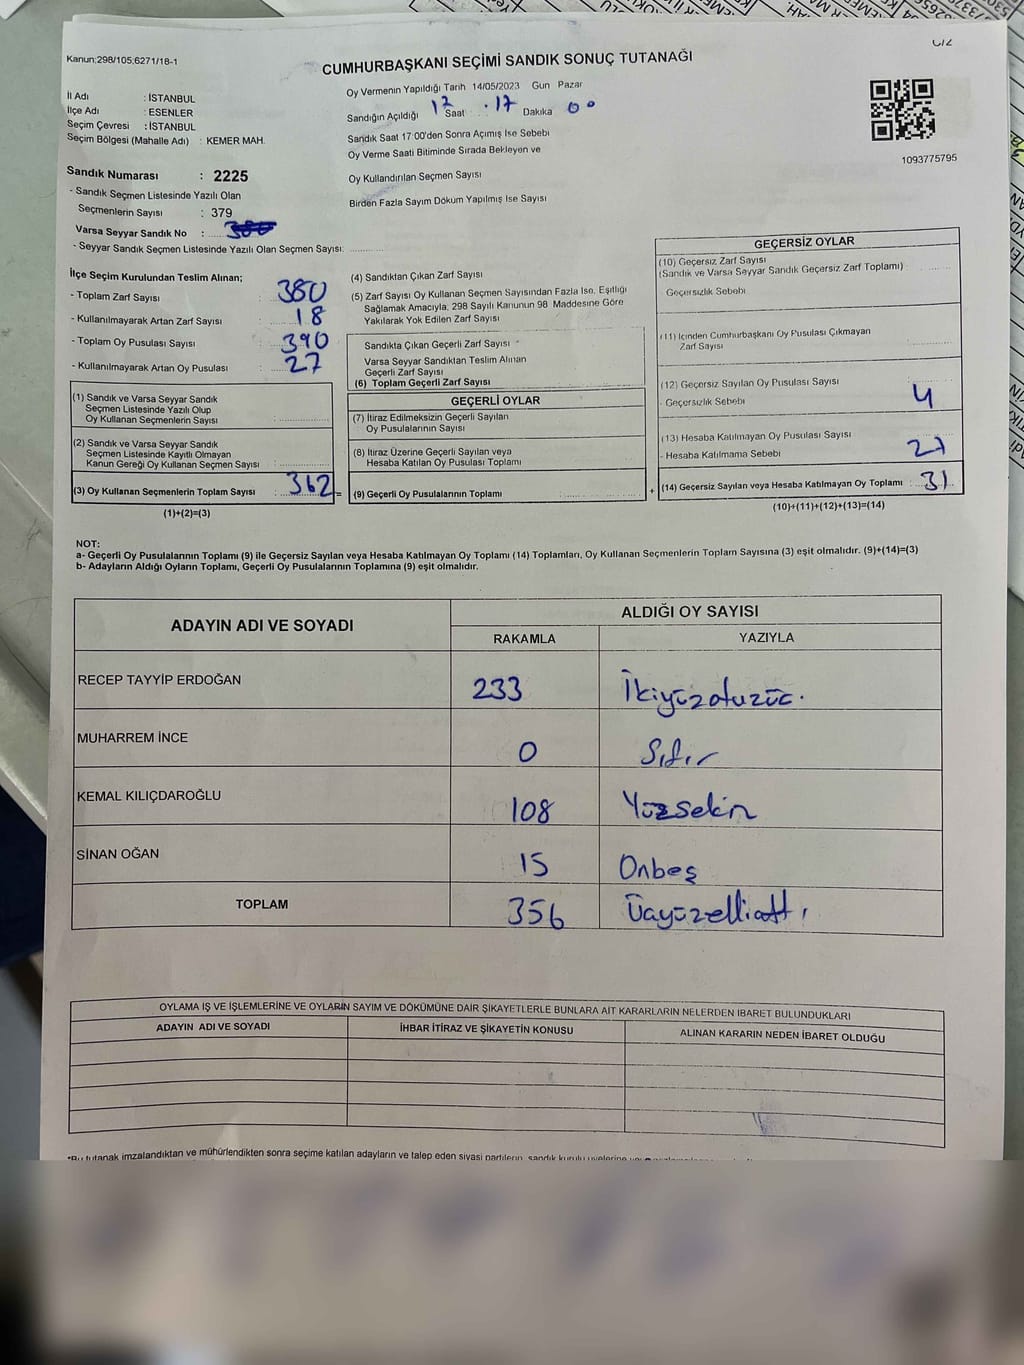 Kanun:298/105,6271/18-1
CUMHURBAŞKANI SEÇİMİ SANDIK SONUÇ TUTANAĞI
İl Adı : İSTANBUL
İlçe Adı : ESENLER
Seçim Çevresi : İSTANBUL
Seçim Bölgesi (Mahalle Adı) : KEMER MAH.
Oy Vermenin Yapıldığı Tarih 14/05/2023 Gün Pazar
Sandığın Açıldığı Saat 17 Dakika 00
Sandık Saat 17:00'den Sonra Açımış İse Sebebi
Oy Verme Saati Bitiminde Sırada Bekleyen ve
Oy Kullandırılan Seçmen Sayısı
Birden Fazla Sayım Döküm Yapılmış İse Sayısı
1093775795
Sandık Numarası : 2225
- Sandık Seçmen Listesinde Yazılı Olan
Seçmenlerin Sayısı : 379
Varsa Seyyar Sandık No :
- Seyyar Sandık Seçmen Listesinde Yazılı Olan Seçmen Sayısı:
İlçe Seçim Kurulundan Teslim Alınan;
- Toplam Zarf Sayısı : 380
- Kullanılmayarak Artan Zarf Sayısı : 18
- Toplam Oy Pusulası Sayısı : 390
- Kullanılmayarak Artan Oy Pusulası : 27
(1) Sandık ve Varsa Seyyar Sandık
Seçmen Listesinde Yazılı Olup
Oy Kullanan Seçmenlerin Sayısı :
(2) Sandık ve Varsa Seyyar Sandık
Seçmen Listesinde Kayıtlı Olmayan
Kanun Gereği Oy Kullanan Seçmen Sayısı :
(3) Oy Kullanan Seçmenlerin Toplam Sayısı : 362 =
(1)+(2)=(3)
(4) Sandıktan Çıkan Zarf Sayısı
(5) Zarf Sayısı Oy Kullanan Seçmen Sayısından Fazla İse, Eşitliği
Sağlamak Amacıyla, 298 Sayılı Kanunun 98 Maddesine Göre
Yakılarak Yok Edilen Zarf Sayısı
Sandıkta Çıkan Geçerli Zarf Sayısı
Varsa Seyyar Sandıktan Teslim Alınan
Geçerli Zarf Sayısı
(6) Toplam Geçerli Zarf Sayısı
GEÇERLİ OYLAR
(7) İtiraz Edilmeksizin Geçerli Sayılan
Oy Pusulalarının Sayısı
(8) İtiraz Üzerine Geçerli Sayılan veya
Hesaba Katılan Oy Pusulası Toplamı
(9) Geçerli Oy Pusulalarının Toplamı : +
GEÇERSİZ OYLAR
(10) Geçersiz Zarf Sayısı
(Sandık ve Varsa Seyyar Sandık Geçersiz Zarf Toplamı) :
Geçersizlik Sebebi
(11) İçinden Cumhurbaşkanı Oy Pusulası Çıkmayan
Zarf Sayısı
(12) Geçersiz Sayılan Oy Pusulası Sayısı
- Geçersizlik Sebebi 4
(13) Hesaba Katılmayan Oy Pusulası Sayısı
- Hesaba Katılmama Sebebi 27
(14) Geçersiz Sayılan veya Hesaba Katılmayan Oy Toplamı : 31
(10)+(11)+(12)+(13)=(14)
NOT:
a- Geçerli Oy Pusulalarının Toplamı (9) ile Geçersiz Sayılan veya Hesaba Katılmayan Oy Toplamı (14) Toplamları, Oy Kullanan Seçmenlerin Toplam Sayısına (3) eşit olmalıdır. (9)+(14)=(3)
b- Adayların Aldığı Oyların Toplamı, Geçerli Oy Pusulalarının Toplamına (9) eşit olmalıdır.
ADAYIN ADI VE SOYADI ALDIĞI OY SAYISI
RAKAMLA YAZIYLA
RECEP TAYYİP ERDOĞAN 233 İkiyüzotuzüç.
MUHARREM İNCE 0 Sıfır
KEMAL KILIÇDAROĞLU 108 Yüzsekiz
SİNAN OĞAN 15 Onbeş
TOPLAM 356 Üçyüzellialtı
OYLAMA İŞ VE İŞLEMLERİNE VE OYLARIN SAYIM VE DÖKÜMÜNE DAİR ŞİKAYETLERLE BUNLARA AİT KARARLARIN NELERDEN İBARET BULUNDUKLARI
ADAYIN ADI VE SOYADI İHBAR İTİRAZ VE ŞİKAYETİN KONUSU ALINAN KARARIN NEDEN İBARET OLDUĞU
*Bu tutanak imzalandıktan ve mühürlendikten sonra seçime katılan adayların ve talep eden siyasi partilerin, sandık kurulu üyelerine